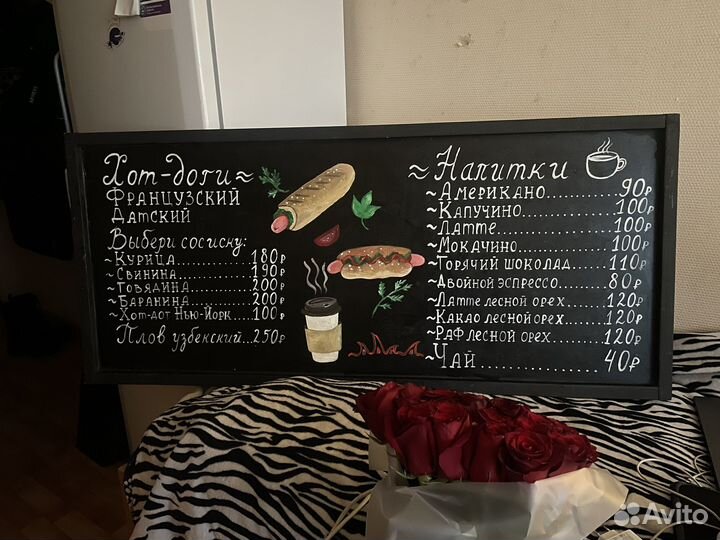 Хот-доги≈
Французский
Датский
Выбери сосиску:
~Курица............180₽
~Свинина..........190₽
~Говядина.........200₽
~Баранина.........200₽
~Хот-дог Нью-Йорк....100₽
Плов узбекский...250₽
≈Напитки
~Американо...........90₽
~Капучино............100₽
~Латте.................100₽
~Мокачино............100₽
~Горячий шоколад....110₽
~Двойной эспрессо......80₽
~Латте лесной орех....120₽
~Какао лесной орех.....120₽
~Раф лесной орех......120₽
~Чай..................40₽
Avito